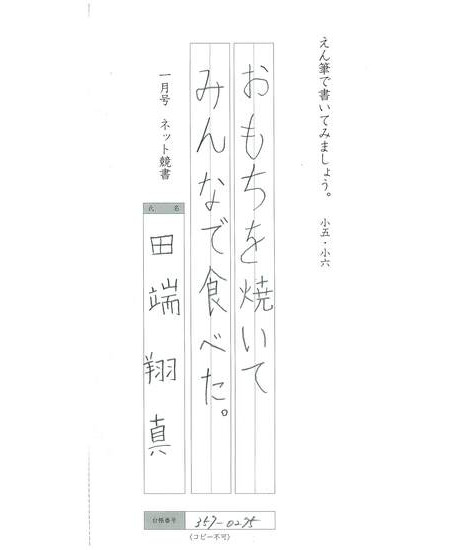 えん筆で書いてみましょう。 小五・小六
おもちを焼いて
みんなで食べた。
一月号 ネット競書
氏 名
田端翔真
台帳番号 357-0295
(コピー不可)